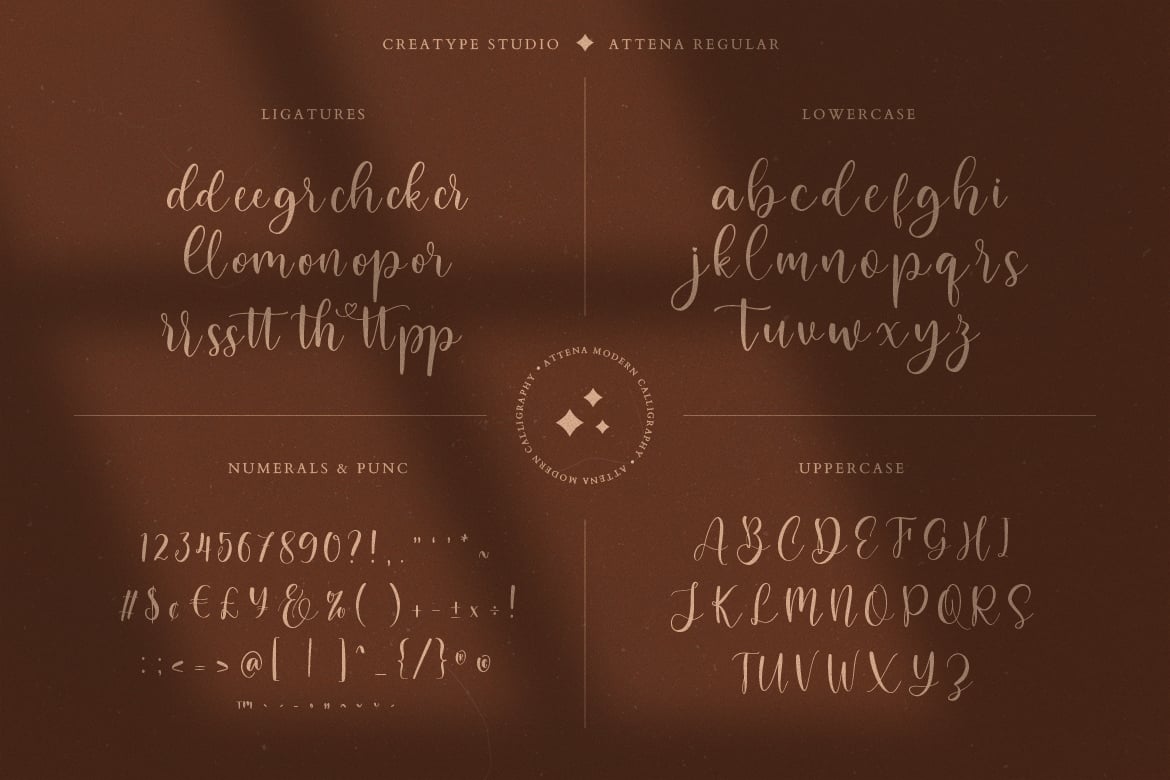 CREATYPE STUDIO ✦ ATTENA REGULAR
LIGATURES
dd ee gr ch ck cr
ll om on op or
rr ss tt th tt pp
LOWERCASE
a b c d e f g h i
j k l m n o p q r s
t u v w x y z
ATTENA MODERN CALLIGRAPHY • ATTENA MODERN CALLIGRAPHY •
NUMERALS & PUNC
1 2 3 4 5 6 7 8 9 0 ? ! , . " ' ' * ~
# $ ¢ € £ ¥ & % ( ) + - ± x ÷ !
: ; < = > @ [ | ] ^ _ { / } ® ©
™
UPPERCASE
A B C D E F G H I
J K L M N O P Q R S
T U V W X Y Z